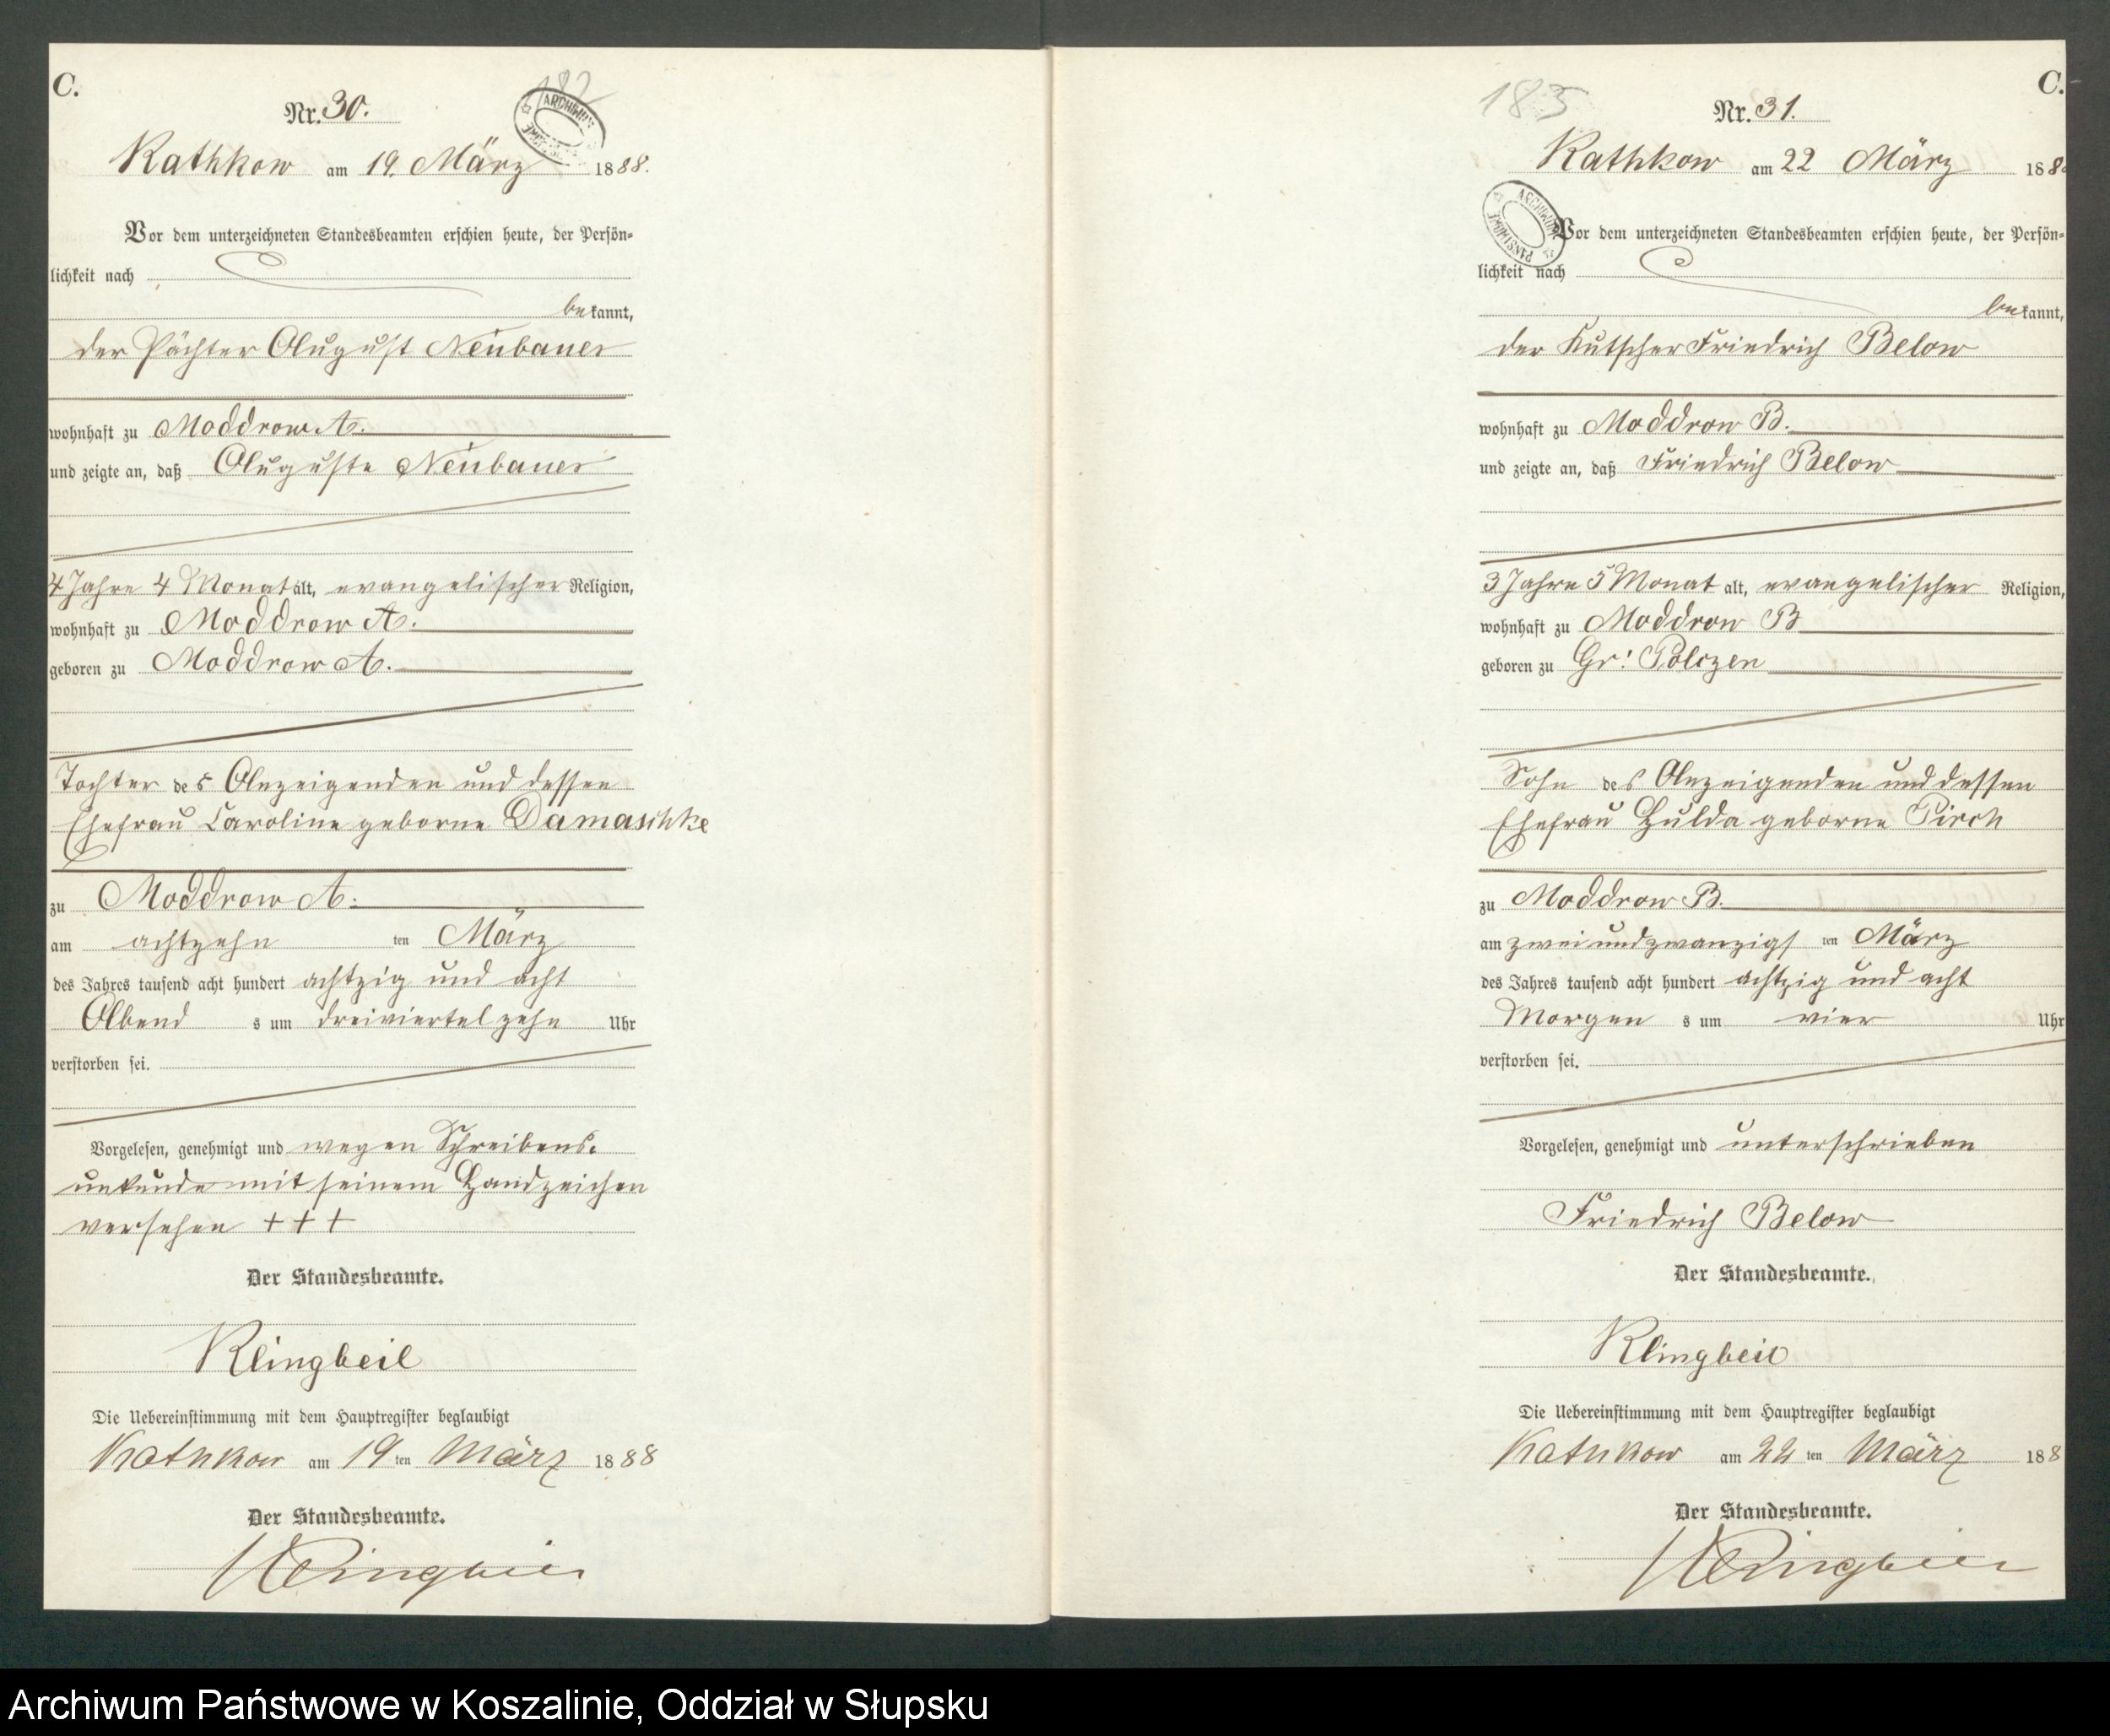 C.
182
Nr. 30.
ARCHIWUM
Rathkow am 19. März 1888.
Vor dem unterzeichneten Standesbeamten erschien heute, der Persön=
lichkeit nach
bekannt,
der Pächter August Neubauer
wohnhaft zu Moddrow A.
und zeigte an, daß Auguste Neubauer
4 Jahre 4 Monat alt, evangelischer Religion,
wohnhaft zu Moddrow A.
geboren zu Moddrow A.
Tochter des Anzeigenden und dessen
Ehefrau Caroline geborne Damaschke
zu Moddrow A.
am achtzehn ten März
des Jahres tausend acht hundert achtzig und acht
Abend s um dreiviertel zehn Uhr
verstorben sei.
Vorgelesen, genehmigt und wegen Schreibens=
unkunde mit seinem Handzeichen
versehen +++
Der Standesbeamte.
Klingbeil
Die Uebereinstimmung mit dem Hauptregister beglaubigt
Rathkow am 19 ten März 1888
Der Standesbeamte.
Klingbeil
C.
183
Nr. 31.
Rathkow am 22 März 188
ARCHIWUM PAŃSTWOWE
Vor dem unterzeichneten Standesbeamten erschien heute, der Persön=
lichkeit nach
bekannt,
der Kutscher Friedrich Below
wohnhaft zu Moddrow B.
und zeigte an, daß Friedrich Below
3 Jahre 5 Monat alt, evangelischer Religion,
wohnhaft zu Moddrow B
geboren zu Gr: Polczen
Sohn des Anzeigenden und dessen
Ehefrau Hulda geborne Pirch
zu Moddrow B.
am zwei und zwanzigs ten März
des Jahres tausend acht hundert achtzig und acht
Morgen s um vier Uhr
verstorben sei.
Vorgelesen, genehmigt und unterschrieben
Friedrich Below
Der Standesbeamte.
Klingbeil
Die Uebereinstimmung mit dem Hauptregister beglaubigt
Rathkow am 22 ten März 188
Der Standesbeamte.
Klingbeil
Archiwum Państwowe w Koszalinie, Oddział w Słupsku